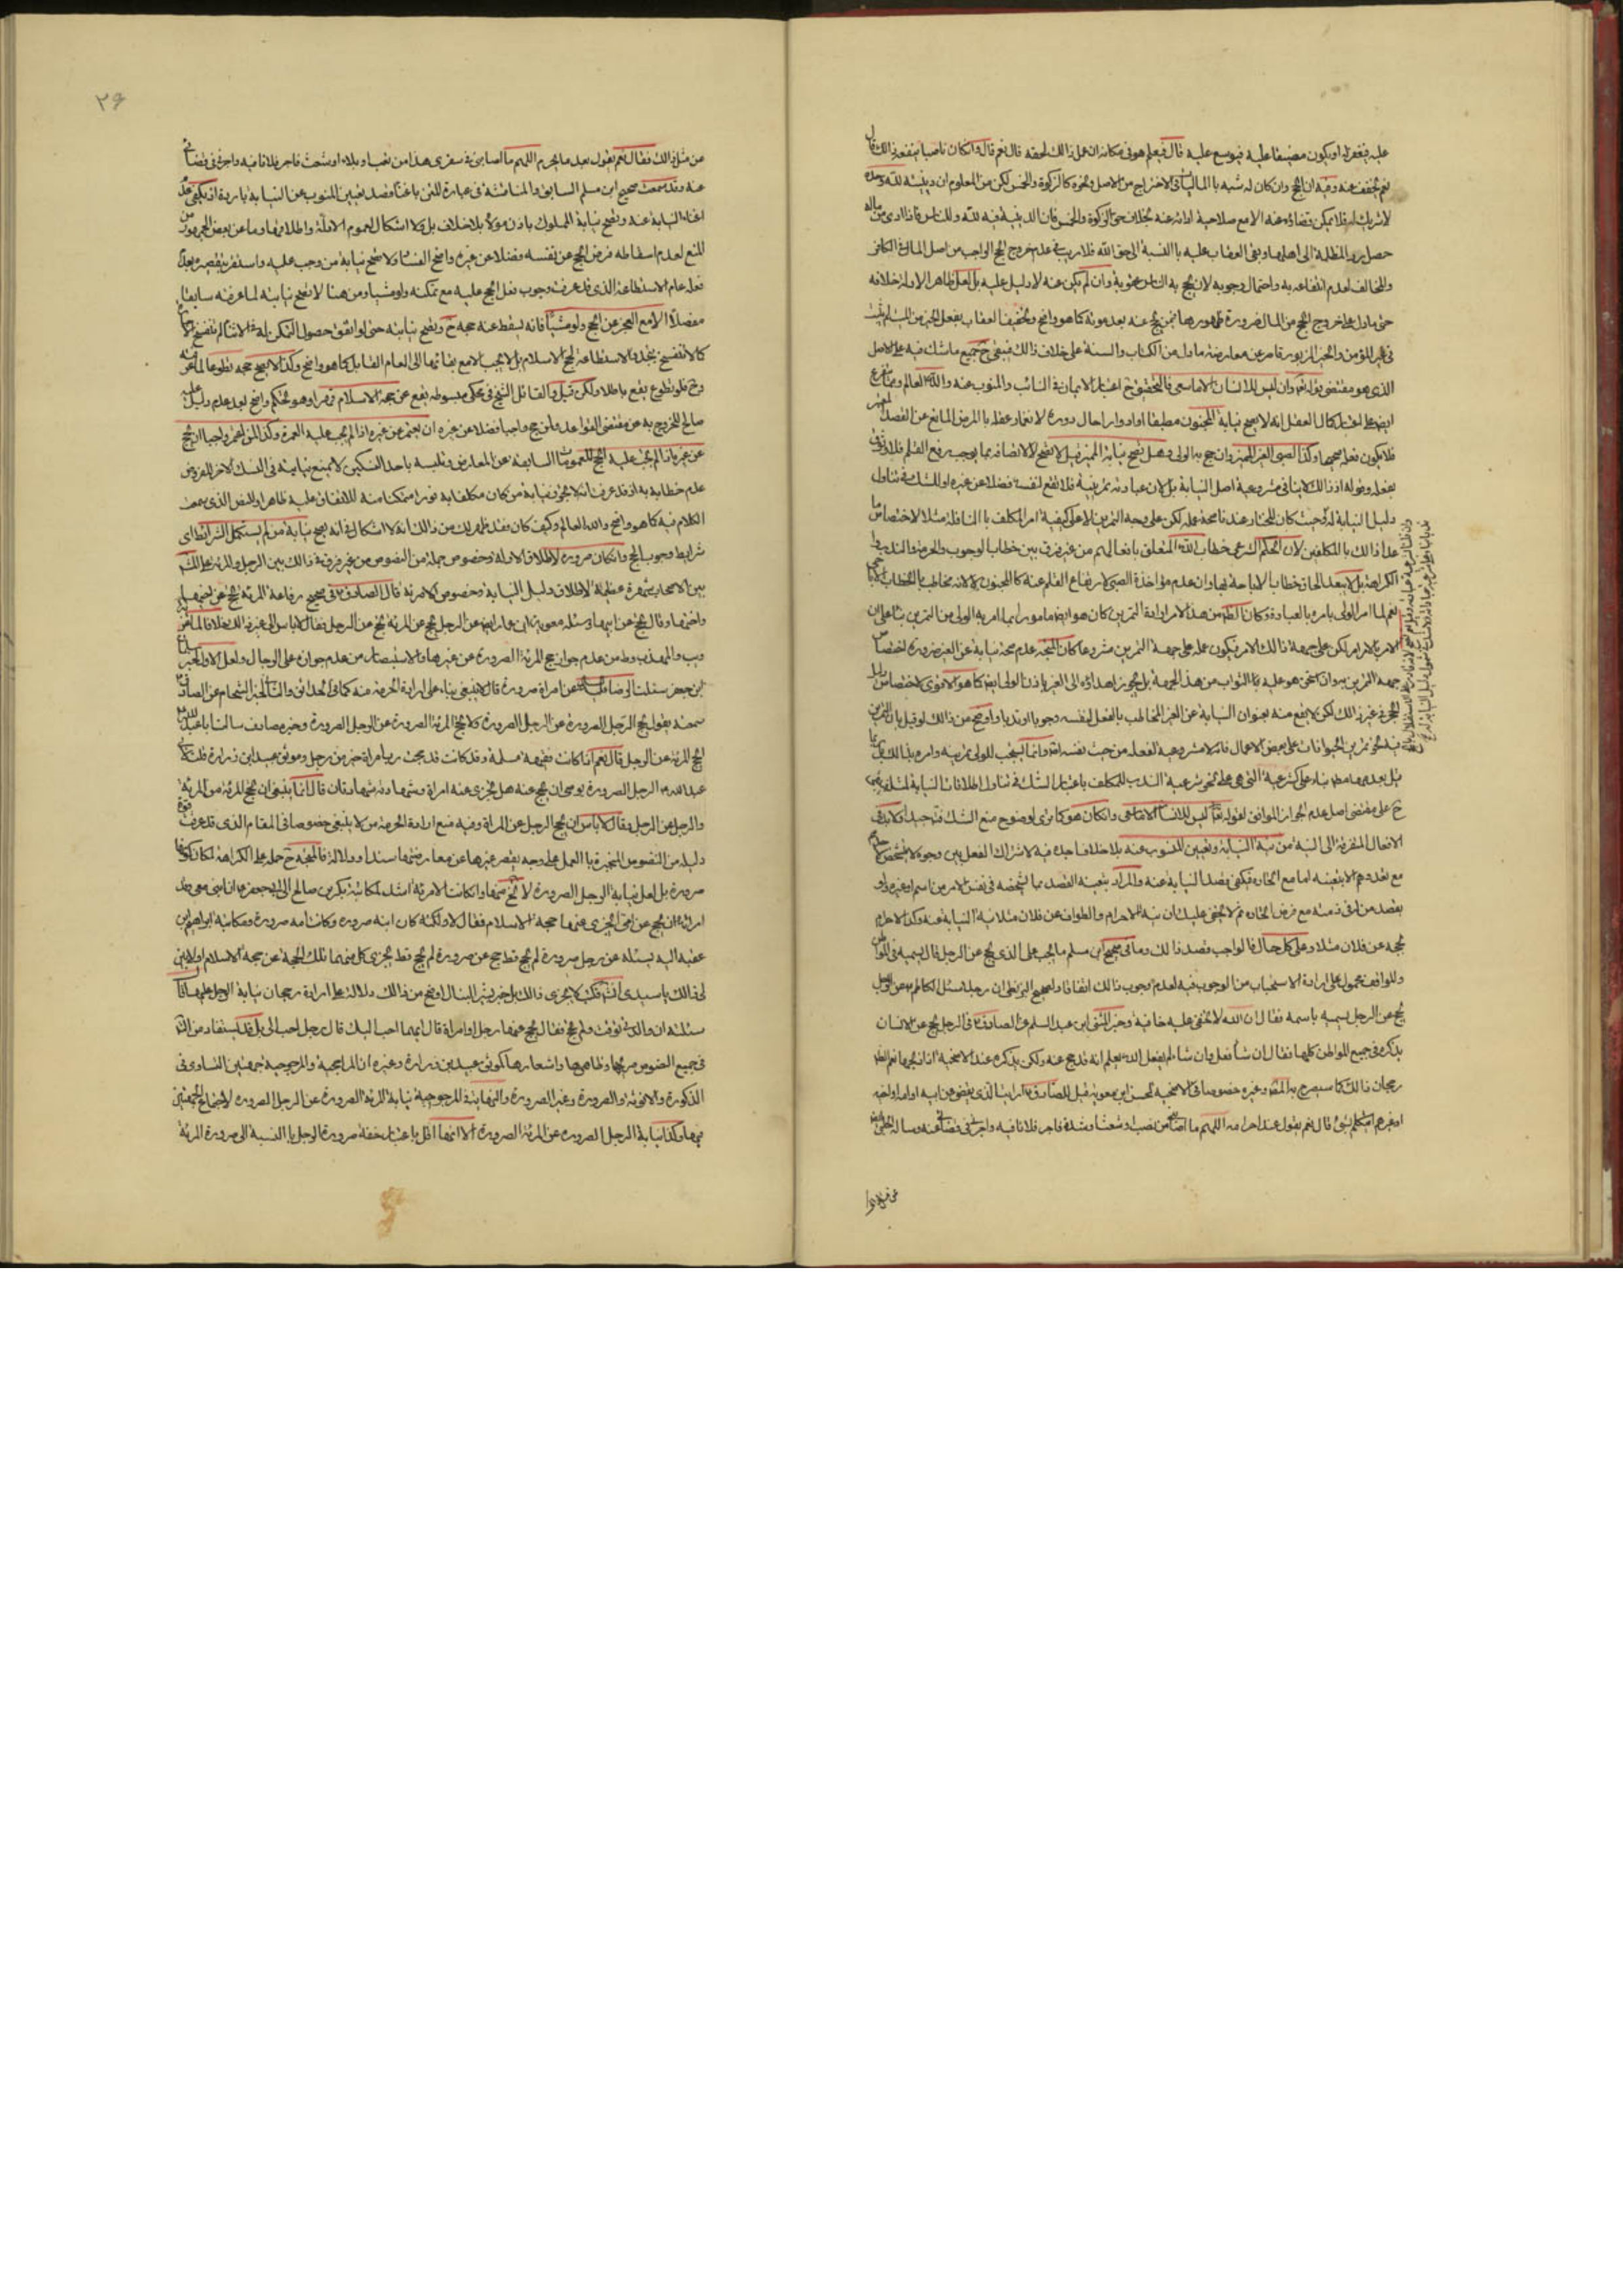 عليه فيغفر له او يكون مضيقا عليه فيوسع عليه قال فيعلم هو في مكانه ان عمل ذالك لحقه قال نعم قال وانكان ناصبا ينفعه ذالك قال
نعم يخفف عنه وفيه ان الحج وان كان له شبه با الماليات في الاخراج من الاصل ونحوه كالزكوة والخمس لكن من المعلوم ان دينيته لله وحده
لا شريك له فلا يمكن قضاؤه عنه الا مع صلاحية ادائه عنه بخلاف حق الزكوة والخمس فان الدينية فيه لله وللناس فاذا ادى من ماله
حصل برد المظلمة الى اهلها وبقى العقاب عليه با النسبة الى حق الله فلا ريب في عدم خروج الحج الواجب من اصل المال في الكافر
والمخالف لعدم انتفاعه به واحتمال وجوبه لان يحج به الناس عقوبة وان لم يكن عنه لا دليل عليه بل لعل ظاهر الادلة خلافه
حتى ما دل على خروج الحج من المال ضرورة ظهورها فيمن يحج عنه بعد موته كما هو واضح وتخفيف العقاب بفعل الخير من المسلم يثبت
في غير المؤمن والخبر المزبور قاصر عن معارضة ما دل من الكتاب والسنة على خلاف ذالك فيبقى ح جميع ما شك فيه على الاصل
الذي هو مقتضى قوله تعالى وان ليس للانسان الا ما سعى فالتحقيق ح اعتبار الايمان في النائب والمنوب عنه والله العالم ومما تفرع
ايضا على اعتبار كمال العقل انه لا يصح نيابة المجنون مطبقا او ادوارا حال دوره لانغمار عقله با المرض المانع عن القصد
فلا يكون فعله صحيحا وكذا الصبى الغير المميز وان حج به الولى وهل تصح نيابة المميز قيل لا تصح لا لاتصافه بما يوجب رفع القلم فلا وثوق
بفعله وقوله اذ ذالك لا ينافى مشروعية اصل النيابة بل لان عبادته تمرينية فلا تقع لنفسه فضلا عن غيره او للشك في تناول
دليل النيابة له وحيث كان المختار عندنا صحة عمله لكن على وجه التمرين لا على كيفية امر المكلف با النافلة مثلا لاختصاص ما
عدا ذالك با المكلفين لان الحكم الشرعى خطاب الله المتعلق بافعالهم من غير فرق بين خطاب الوجوب والحرمة والندب وا
الكراهة بل لا يبعد الحاق خطاب الاباحة بها وان عدم مؤاخذة الصبى لارتفاع القلم عنه كا المجنون لا لانه مخاطب با الخطاب
نعم لما امر الولى بامره با العبادة وكان الظاهر من هذا الامر ارادة التمرين كان هو ايضا مامورا بما امر به الولى من التمرين بناء على ان
الامر با الامر امر لكن على جهة ذالك الامر يكون عمله على جهة التمرين مشروعا كان المتجه عدم صحة نيابة عن الغير ضرورة اختصاص
جهة التمرين به وان استحق هو عليه با الثواب من هذا الجهة بل يجوز اهداؤه الى الغير باذن الولى ايضا كما هو الاقوى لاختصاص دليل
الحجر في غير ذالك لكن لا يقع منه بعنوان النيابة عن الغير المخاطب بالفعل لنفسه وجوبا او ندبا واوضح من ذالك لو قيل بان التمرين
فيه نحو تمرين الحيوانات على بعض الاعمال فانه لا مشروعية لفعله من حيث نفسه اصلا وانما يستحب للولى تمرينه وامره بذالك
بل بعدمها مطلقا بناء على كشرعية التى هى على نحو شرعية الندب للمكلف باعتبار الشك في تناول اطلاقات النيابة لمثله فيبقى
ح على مقتضى اصل عدم الجواز الموافق لقوله تعالى ليس للانسان الا ما سعى وانكان هو كما ترى لوضوح منع الشك فيه جيدا ولابد في
الافعال المفتقرة الى النية من نية النيابة وتعيين المنوب عنه بلا خلاف اجده فيه لاشتراك الفعل بين وجوه لا يتشخص الا
مع تعدده الا بتعينه اما مع اتحاده فيكفى قصد النيابة عنه والمراد بتعينه القصد بما الشخصه في نفس الامر من اسم او غيره ولو
بقصد من في ذمته مع فرض اتحاده ثم لا يخفى عليك ان نية الاحرام والطواف عن فلان مثلا نية النيابة عنه وكذا الاحرام
بحجه عن فلان مثلا وعلى كل حال فالواجب قصد ذالك وما في صحيح ابن مسلم ما يجب على الذى يحج عن الرجل قال يسميه في المواطن
والمواقف محمول على ارادة الاستحباب من الوجوب فيه لعدم وجوب ذالك اتفاقا ولصحيح البزنطى ان رجلا سئل الكاظم ع عن الرجل
يحج عن الرجل يسميه باسمه فقال ان الله لا تخفى عليه خافية وخبر المثنى ابن عبد السلم عن الصادق ع في الرجل يحج عن الانسان
يذكره في جميع المواطن كلها فقال ان شاء فعل وان شاء لم يفعل الله يعلم انه قد حج عنه ولكن يذكره عند الاضحية اذا ذبحها نعم الظ
رجحان ذالك كما سيصرح به المصنف وغيره خصوصا في الاضحية لحسن ابن معوية قيل للصادق ع ارايت الذى يقضى عن ابيه او امه او اخيه
او غيرهم ايتكلم بشئ قال نعم يقول عند احرامه اللهم ما اصابني من نصب او شعث او شدة فاجر فلانا فيه واجرني في قضائي عنه وساله الحلبى ايضا
عن مثل ذالك فقال نعم يقول بعد ما يحرم اللهم ما اصابني في سفرى هذا من تعب او بلاء او شعث فاجر فلانا فيه واجرني في قضائي
عنه وقد سمعت صحيح ابن مسلم السابق والمناقشة في عبارة المتن باغناء قصد تعيين المنوب عن النيابة باردة اذ يكفى عدم
اغناء النيابة عنه وتصح نيابة المملوك باذن مولاه بلا خلاف بل ولا اشكال لعموم الادلة واطلاقها وما عن بعض الجمهور من
المنع لعدم اسقاطه فرض الحج عن نفسه فضلا عن غيره واضح الفساد ولا تصح نيابة من وجب عليه واستقر بتقصيره بعدم
فعله عام الاستطاعة الذى قد عرفت وجوب فعل الحج عليه مع تمكنه ولو مشيا ومن هنا لا تصح نيابته لما عرفته سابقا
مفصلا الا مع العجز عن الحج ولو مشيا فانه يسقط عنه حجه ح وتصح نيابته حتى لو اتفق حصول التمكن له في الاثناء لم تنفسخ
كما لا تنفسخ بتجدد الاستطاعة لحج الاسلام بل لا يجب الا مع بقائها الى العام القابل كما هو واضح وكذا لا يصح حجه تطوعا لما عرفته
وح فلو تطوع يقع باطلا ولكن قيل والقائل الشيخ في محكى مبسوطه يقع عن حجة الاسلام قهرا وهو تحكم واضح لعدم دليل عليه
صالح للخروج به عن مقتضى القواعد ولمن حج واجبا فضلا عن غيره ان يعتمر عن غيره اذا لم يجب عليه العمرة وكذا لمن اعتمر واجبا ان يحج
عن غيره اذا لم يجب عليه الحج للعمومات السابقة عن المعارض وتلبسه باحد النسكين لا يمنع نيابته في النسك الاخر المفروض
عدم خطابه به اذ قد عرفت انه لا يجوز نيابة من كان مكلفا به فورا متمكنا منه للاتفاق عليه ظاهرا وللنص الذى سمعت
الكلام فيه كما هو واضح والله العالم وكيف كان فقد ظهر لك من ذالك انه لا اشكال في انه يصح نيابة من لم يستكمل الشرائط اى
شرايط وجوب الحج وانكان صرورة لاطلاق الادلة وخصوص جملة من النصوص من غير فرق في ذالك بين الرجل والمرئة على المشهور
بين الاصحاب شهرة عظيمة لاطلاق دليل النيابة وخصوص الامرئة قال الصادق ع في صحيح رفاعة المرئة تحج عن اخيها
واختها وقال تحج عن ابيها وسئله معوية ابن عمار ايضا عن الرجل يحج عن المرئة والمرئة تحج عن الرجل فقال لا باس الى غير ذالك خلافا لما عن
ويب والمهذب وط من عدم جواز حج المرئة الصرورة عن غيرها والاستبصار من عدم جوازه على الرجال ولعل الاول لخبر
ابن جعفر سئلت الرضا عليه السلام عن امراة صرورة قال لا ينبغى بناء على ارادة الحرمة منه كما في الحدائق والثانى لخبر الشحام عن الصادق ع
سمعته يقول يحج الرجل الصرورة عن الرجل الصرورة ولا تحج المرئة الصرورة عن الرجل الصرورة وخبر مصادف سالت ابا عبد الله ع
اتحج المرئة عن الرجل قال نعم اذا كانت فقيهة مسلمة وقد كانت قد حجت رب امراة خير من رجل وموثق عبيد ابن زرارة قلت لابي
عبد الله ع الرجل الصرورة يوصى ان يحج عنه هل يجزى عنه امراة قال لا كيف تجزى امراة وشهادته شهادتان قال انما ينبغى ان تحج المرئة عن المرئة
والرجل عن الرجل وقال لا باس ان يحج الرجل عن المراة وفيه منع ارادة الحرمة من لا ينبغى خصوصا في المقام الذى قد عرفت قوة
دليله من النصوص المنجبرة با العمل على وجه يقصر غيرها عن معارضتها سندا ودلالة فالمتجه ح حمله على الكراهة لمكان كونها
صرورة بل لعل نيابة الرجل الصرورة لا تخ عنها وانكانت الامرئة اشد لمكاتبة بكر بن صالح الى ابى جعفر ع ان ابنى معى وقد
امرته ان يحج عن امى ايجزى عنها حجة الاسلام فقال لا ولكنه كان ابنه صرورة وكانت امه صرورة ومكاتبة ابراهيم بن
عقبة اليه يسئله عن رجل صرورة لم يحج قط حج عن صرورة لم يحج قط يجزى كل منهما تلك الحجة عن حجة الاسلام او لا بين
لى ذالك يا سيدى انشاء الله فكتب لا يجزى ذالك بل خبر بشير النبال اوضح من ذالك دلالة على ارادة رجحان نيابة الرجل عليها قال
سئلته ان والدتى توفيت ولم تحج فقال يحج عنها رجل او امراة قال ايهما احب اليك قال رجل احب الى بل قد يستفاد من التامل
في جميع النصوص صريحها وظاهرها واشعارها كموثق عبيد بن زرارة وغيره ان الراجحية والمرجوحية جهتين التساوى في
الذكورة والانوثة والصرورة وغير الصرورة والنهاية في المرجوحية نيابة المرئة الصرورة عن الرجل الصرورة لاجتماع الجهتين
فيها وكذا نيابة الرجل الصرورة عن المرئة الصرورة الا انها اقل باعتبار خفة صرورة الرجل با النسبة الى صرورة المرئة